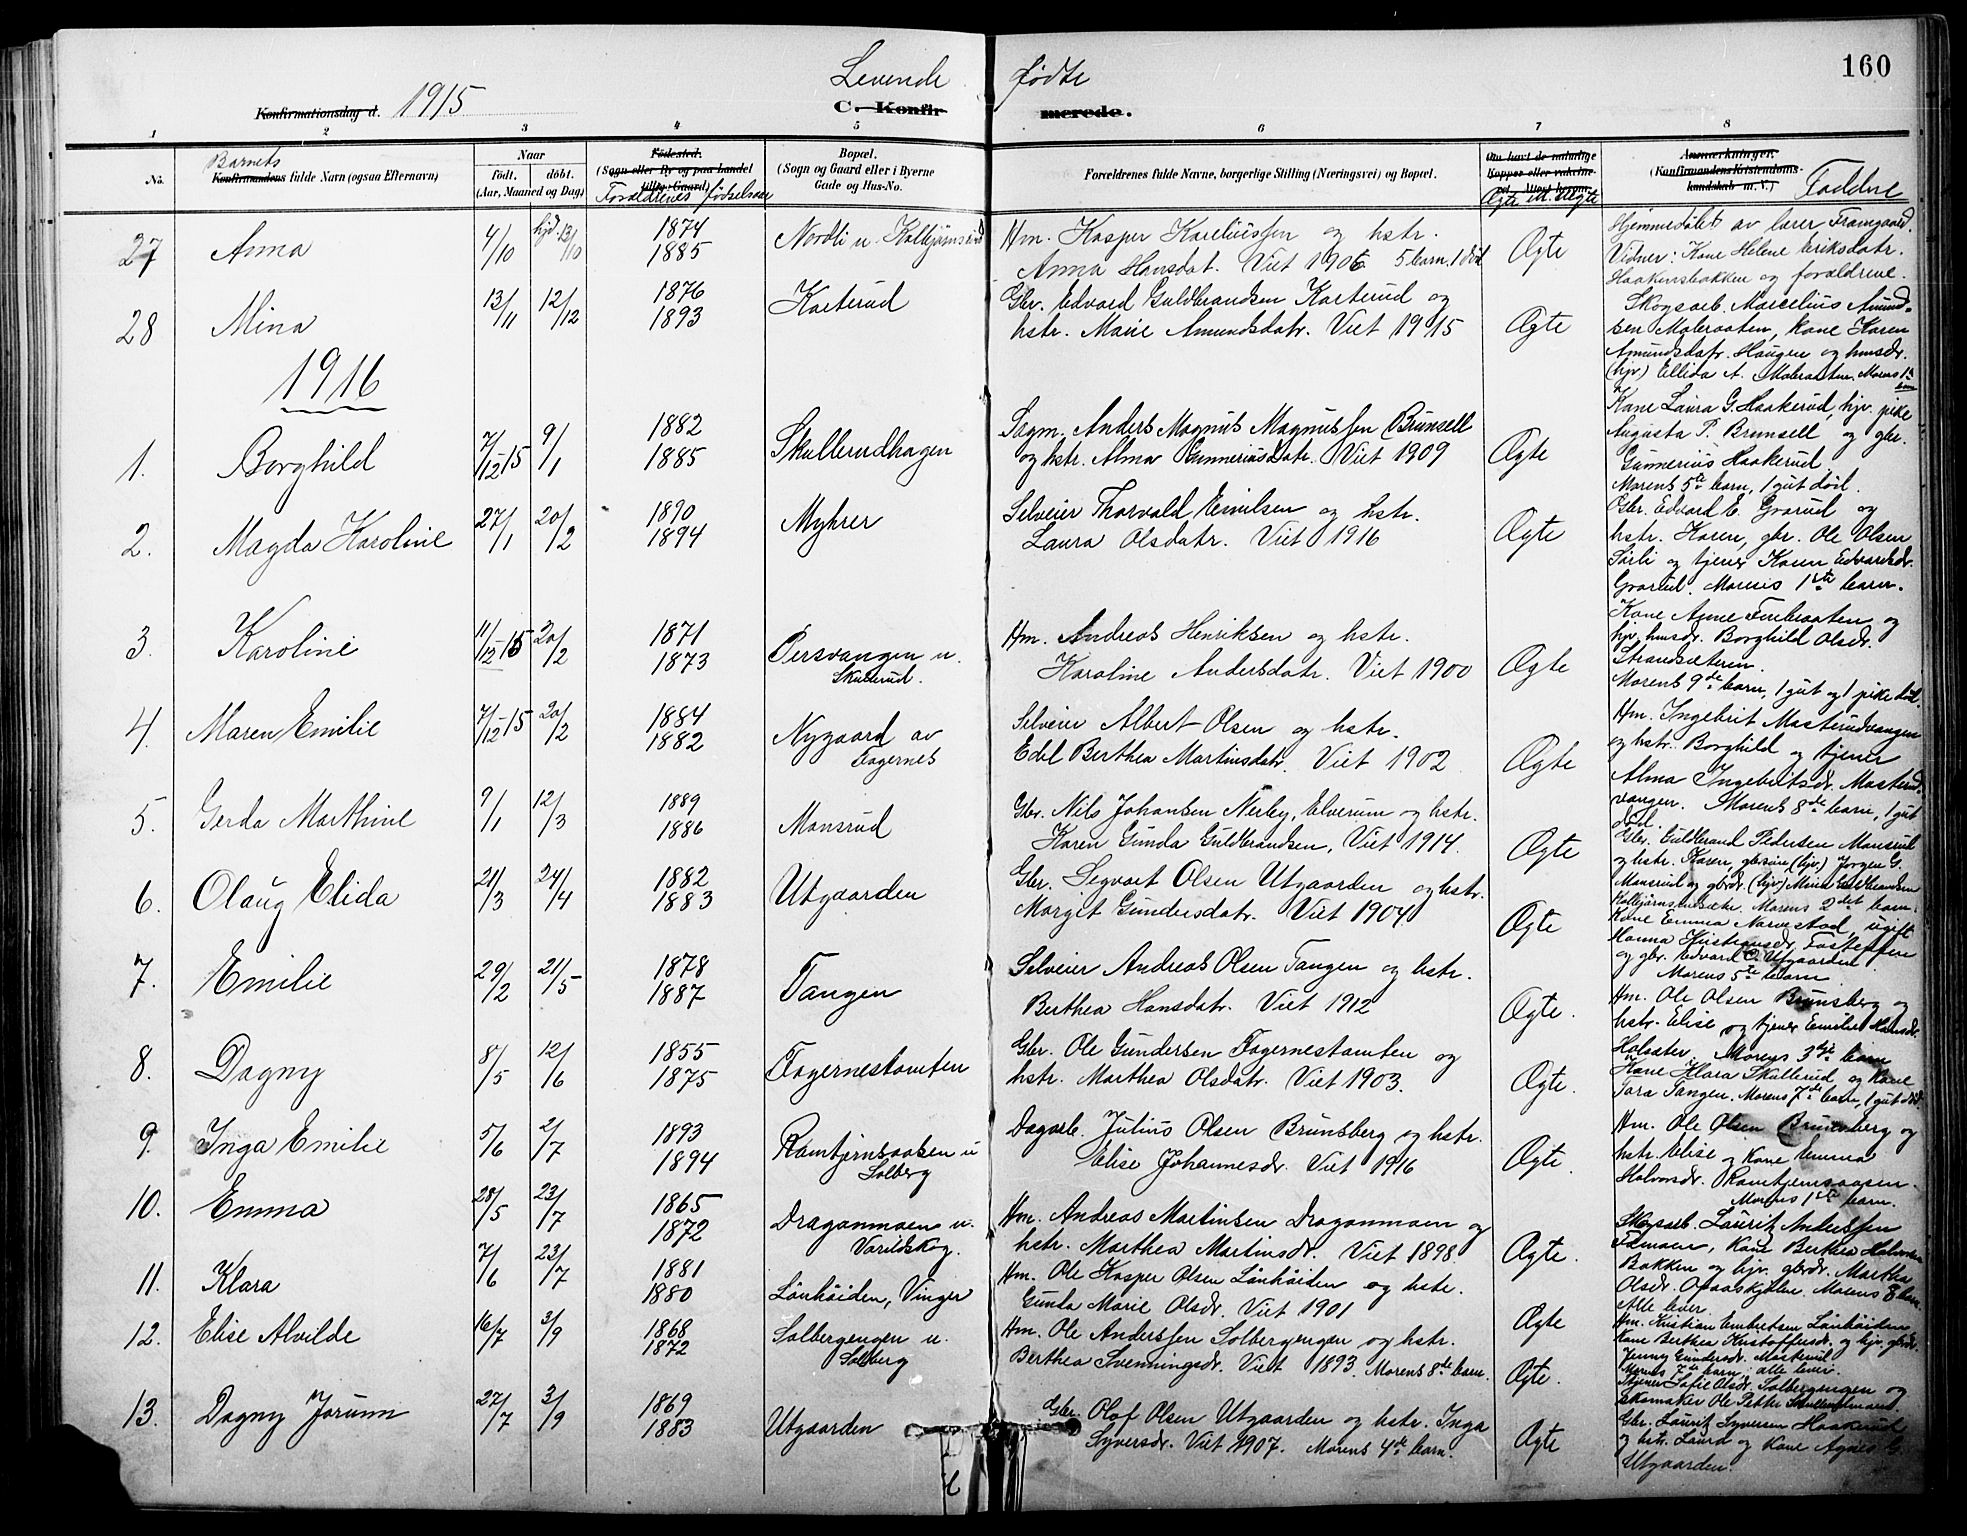 160
Levende fødte
Konfirmationsdag d. 1915
C. Konfirmerede.
1 2 3 4 5 6 7 8
No.
Barnets
Konfirmandens fulde Navn (ogsaa Efternavn)
Naar
født. døbt.
(Aar, Maaned og Dag)
Fødested.
(Sogn eller By og paa Landet tillige Gaard)
Forældrenes fødselsaar
Bopæl.
(Sogn og Gaard eller i Byerne
Gade og Hus-No.
Forældrenes fulde Navne, borgerlige Stilling (Næringsvei) og Bopæl.
Om havt de naturlige
Kopper eller vakcine-
ret. Attest herom.
Ægte el. Uægte
Anmærkninger.
(Konfirmandens Kristendoms-
kundskab m. V.)
Faddere
27 Anna 4/10 hjd. 13/10 1874 1885 Nordli u.
Hm. Kasper Kareliussen og hstr.
Anna Hansdat. Viet 1906 5 barn, 1 död
Ægte
Hjemmedöbt av lærer Framgaard.
Vidner: Kone Helene Eriksdatr.
Haakensbakken og forældrene.
28 Mina 13/11 12/12 1876 1893 Karterud
Gbr. Edvard Guldbrandsen Karterud og
hstr. Marie Amundsdatr. Viet 1915
Ægte
Skogsarb. Marcelius Amund-
sen Maleraaten, kone Karen
Amundsdatr. Haugen og husdr.
(hjv) Ellida A. Maleraaten. Morens 1ste
barn
1916
1. Borghild 7/12-15 9/1 1882 1885 Skullerudhagen
Sagm. Anders Magnus Magnussen Brunsell
og hstr. Alma Gunneriusdatr. Viet 1909
Ægte
Kone Laura G. Haakerud, hjv. pike
Augusta P. Brunsell og gbr.
Gunnerius Haakerud.
Morens 5te barn, 1 gut död.
2. Magda Karoline 27/1 20/2 1890 1894 Myhrer
Selveier Thorvald Emilsen og hstr.
Laura Olsdatr. Viet 1916
Ægte
Gbr. Edvard E. Grarud og
hstr. Karen, gbr. Ole Olsen
Sörli og tjener Karen Edvardsdr.
Grarud. Morens 1ste barn.
3. Karoline 11/12-15 20/2 1871 1873 Persvangen u.
Skullerud.
Hm. Andreas Henriksen og hstr.
Karoline Andersdatr. Viet 1900
Ægte
Kone Agne Finbraaten og
hjv. husdr. Borghild Olsdr.
Strandsæteren.
Morens 9de barn, 1 gut og 1 pike död.
4. Maren Emilie 7/12-15 20/2 1884 1882 Nygaard av
Fagernes
Selveier Albert Olsen og hstr.
Edel Berthea Martinsdatr. Viet 1902
Ægte
Hm. Ingebrit Masterudvangen
og hstr. Borghild og tjener
Alma Ingebritsdr. Masterud-
vangen. Morens 8de barn, 1 gut
död.
5. Gerda Marthine 9/1 12/3 1889 1886 Monsrud
Gbr. Nils Johansen Nerby, Elverum og hstr.
Karen Gunda Guldbrandsen, Viet 1914.
Ægte
Gbr. Guldbrand Pedersen Monsrud
og hstr. Karen, gbrsøn (hjv.) Jørgen G.
Monsrud og gbrdr. (hjv.) Mina Guldbrandsen
Morens 2det barn.
6. Olaug Elida 21/3 24/4 1882 1883 Utgaarden
Gbr. Segvart Olsen Utgaarden og hstr.
Marget Gundersdatr. Viet 1904
Ægte
Kone Emma Narvestad, ugift
Hanna Kristiansdr.
og gbr. Edvard O. Utgaarden.
Morens 5te barn
7. Emilie 29/2 21/5 1878 1887 Tangen
Selveier Andreas Olsen Tangen og hstr.
Berthea Hansdatr. Viet 1912
Ægte.
Hm. Ole Olsen Brunsberg og
hstr. Elise og tjener Emilie Hansdr.
Holsæter. Morens 3dje barn
8. Dagny 8/5 12/6 1855 1875 Fagernestomten
Gbr. Ole Gundersen Fagernestomten og
hstr. Marthea Olsdatr. Viet 1903.
Ægte.
Kone Klara Skullerud og kone
Tara Tangen. Morens 7de barn, 1 gut död.
9. Inga Emilie 5/6 2/7 1893 1894 Ramtjernsaasen u
Solberg
Dagarb. Julius Olsen Brunsberg og hstr.
Elise Johannesdr. Viet 1916
Ægte.
Hm. Ole Olsen Brunsberg og
hstr. Elise og kone Emma
Halvorsdr. Ramtjernsaasen.
Morens 1ste barn.
10. Emma 28/5 23/7 1865 1872 Draganmoen u.
Varildskog.
Hm. Andreas Martinsen Draganmoen og
hstr. Marthea Martinsdr. Viet 1898
Ægte.
Skogsarb. Lauritz Anderssen
kone Berthea Halvorsen
Bakken og hjv. gbrdr. Martha
Olsdr. Opaaskjölen. Morens 8 barn
Alle lever.
11. Klara 7/6 23/7 1881 1880 Lönhöiden, Vinger
Hm. Ole Kasper Olsen Lönhöiden og hstr.
Gunda Marie Olsdr. Viet 1901
Ægte
Hm. Kristian Embretsen Lönhöiden
Kone Berthea Kristoffersdr. og hjv. gbrdr.
Jenny Gundersdr.
Morens 7de barn, alle lever.
12. Elise Alvilde 16/7 3/9 1868 1872 Solbergengen u.
Solberg
Hm. Ole Anderssen Solbergengen og hstr.
Berthea Svenningsdr. Viet 1893. Morens 8de barn.
Ægte.
Tjener Sofie Olsdr. Solbergengen og
skomaker Ole Petter
13. Dagny Jorunn 27/7 3/9 1869 1883 Utgaarden
Gbr. Olaf Olsen Utgaarden og hstr. Inga
Syversdr. Viet 1907. Morens 4de barn.
Ægte
Gbr. Lauritz Syversen Haakerud
og hstr. Laura og kone Agnes G.
Utgaarden.